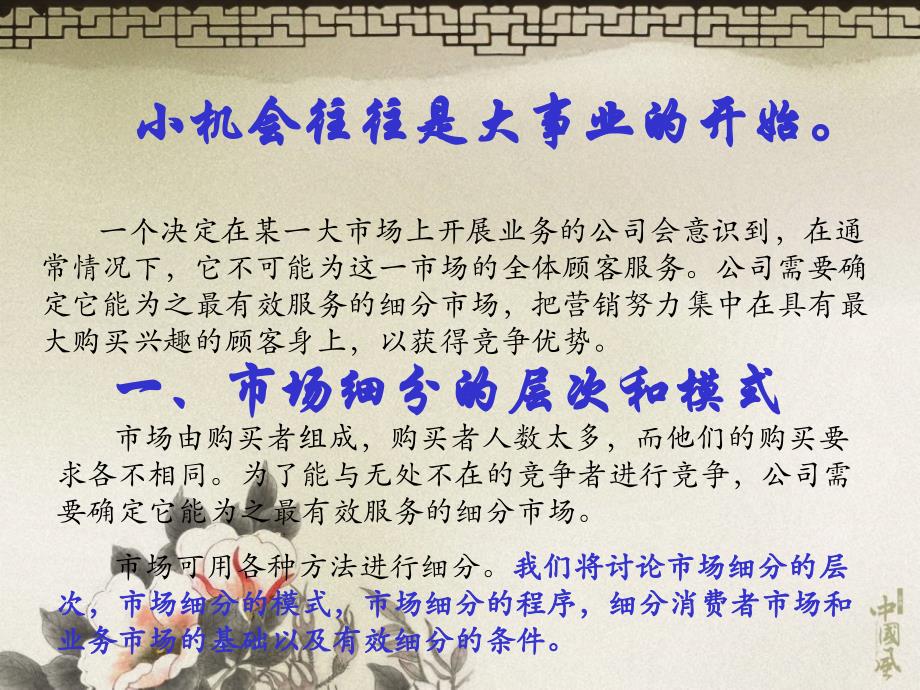 小机会往往是大事业的开始。
一个决定在某一大市场上开展业务的公司会意识到，在通
常情况下，它不可能为这一市场的全体顾客服务。公司需要确
定它能为之最有效服务的细分市场，把营销努力集中在具有最
大购买兴趣的顾客身上，以获得竞争优势。
一、市场细分的层次和模式
市场由购买者组成，购买者人数太多，而他们的购买要
求各不相同。为了能与无处不在的竞争者进行竞争，公司需
要确定它能为之最有效服务的细分市场。
市场可用各种方法进行细分。我们将讨论市场细分的层
次，市场细分的模式，市场细分的程序，细分消费者市场和
业务市场的基础以及有效细分的条件。
中國风